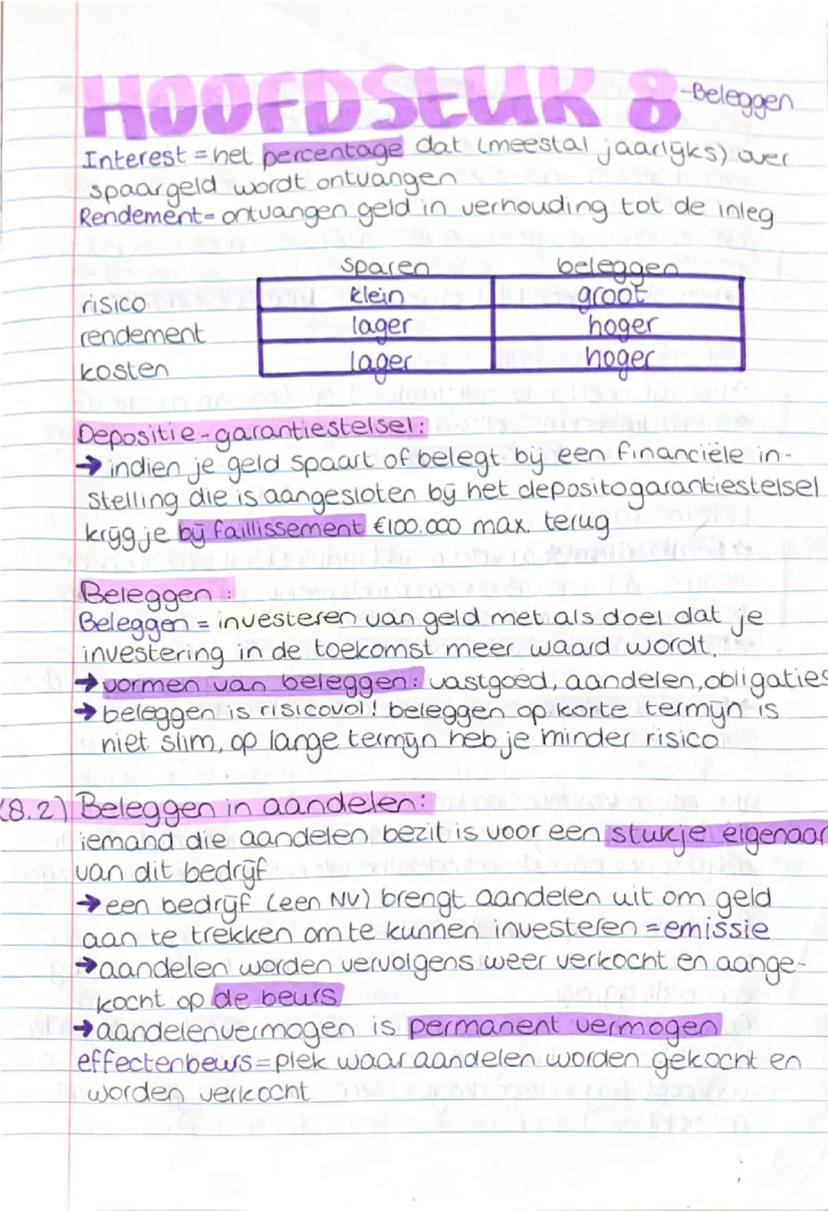 HOOFDStUK 8 -Beleggen
Interest = het percentage dat (meestal jaarlijks) over
spaargeld wordt ontvangen
Rendement = ontvangen geld in verhouding tot de inleg
sparen beleggen
risico klein groot
rendement lager hoger
kosten lager hoger
Depositie-garantiestelsel:
→ indien je geld spaart of belegt bij een financiële in-
stelling die is aangesloten bij het depositogarantiestelsel
krijg je bij faillissement €100.000 max. terug
Beleggen:
Beleggen = investeren van geld met als doel dat je
investering in de toekomst meer waard wordt.
→ vormen van beleggen: vastgoed, aandelen, obligaties
→ beleggen is risicovol! beleggen op korte termijn is
niet slim, op lange termijn heb je minder risico
(8.2) Beleggen in aandelen:
iemand die aandelen bezit is voor een stukje eigenaar
van dit bedrijf
→ een bedrijf (een NV) brengt aandelen uit om geld
aan te trekken om te kunnen investeren = emissie
→ aandelen worden vervolgens weer verkocht en aange-
kocht op de beurs
→ aandelenvermogen is permanent vermogen
effectenbeurs = plek waar aandelen worden gekocht en
worden verkocht